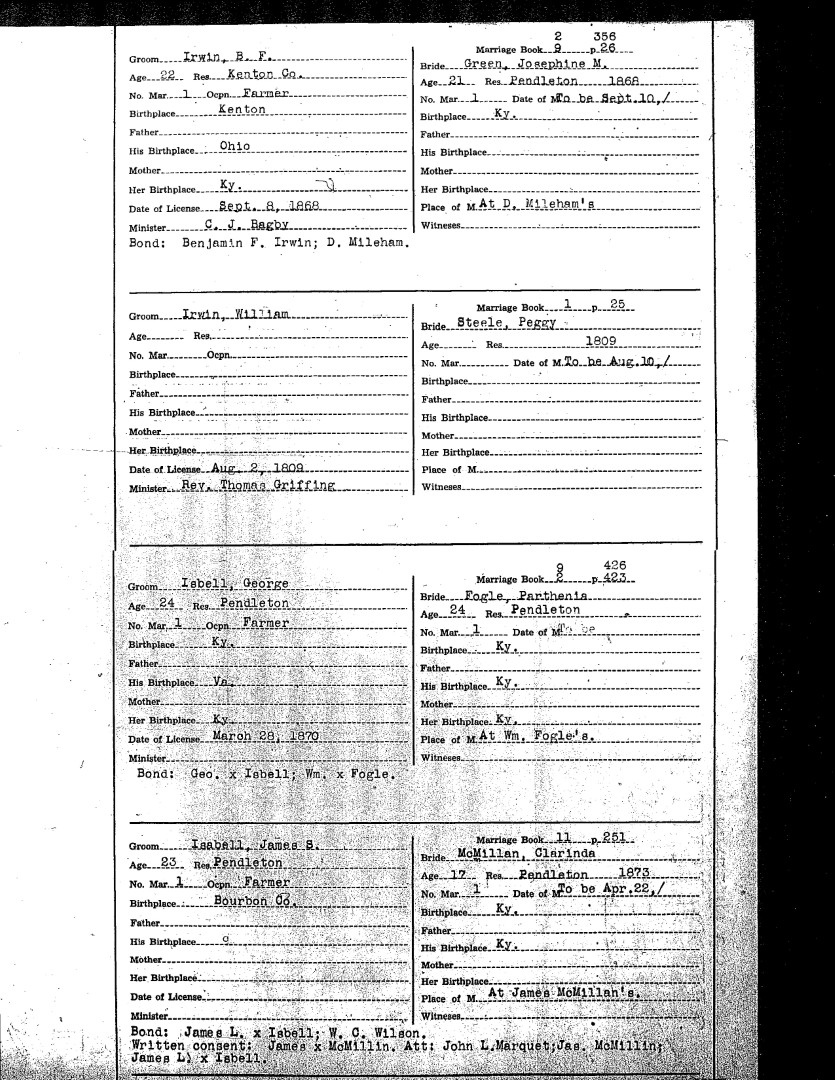 2 356
Marriage Book 9 p. 26
Groom Irwin, B. F.
Bride Green, Josephine M.
Age 22 Res. Kenton Co.
Age 21 Res. Pendleton 1868
No. Mar. 1 Ocpn. Farmer
No. Mar. 1 Date of M. To be Sept.10,/
Birthplace Kenton
Birthplace Ky.
Father
Father
His Birthplace Ohio
His Birthplace
Mother
Mother
Her Birthplace Ky.
Her Birthplace
Date of License Sept. 8, 1868
Place of M. At D. Mileham's
Minister C. J. Bagby
Witnesses
Bond: Benjamin F. Irwin; D. Mileham.
Marriage Book 1 p. 25
Groom Irwin, William
Bride Steele, Peggy
Age Res.
Age Res. 1809
No. Mar. Ocpn.
No. Mar. Date of M. To be Aug.10,/
Birthplace
Birthplace
Father
Father
His Birthplace
His Birthplace
Mother
Mother
Her Birthplace
Her Birthplace
Date of License Aug. 2, 1809
Place of M.
Minister Rev. Thomas Griffing
Witnesses
9 426
Marriage Book 2 p. 423
Groom Isbell, George
Bride Fogle, Parthenia
Age 24 Res. Pendleton
Age 24 Res. Pendleton
No. Mar. 1 Ocpn. Farmer
No. Mar. 1 Date of M. To be
Birthplace Ky.
Birthplace Ky.
Father
Father
His Birthplace Va.
His Birthplace Ky.
Mother
Mother
Her Birthplace Ky.
Her Birthplace Ky.
Date of License March 28, 1870
Place of M. At Wm. Fogle's.
Minister
Witnesses
Bond: Geo. x Isbell; Wm. x Fogle.
Marriage Book 11 p. 251
Groom Isabell, James S.
Bride McMillan, Clarinda
Age 23 Res. Pendleton
Age 17 Res. Pendleton 1873
No. Mar. 1 Ocpn. Farmer
No. Mar. 1 Date of M. To be Apr.22,/
Birthplace Bourbon Co.
Birthplace Ky.
Father
Father
His Birthplace
His Birthplace Ky.
Mother
Mother
Her Birthplace
Her Birthplace
Date of License
Place of M. At James McMillan's.
Minister
Witnesses
Bond: James L. x Isbell; W. C. Wilson.
Written consent: James x McMillin. Att: John L.Marquet;Jas. McMillin;
James L) x Isbell.